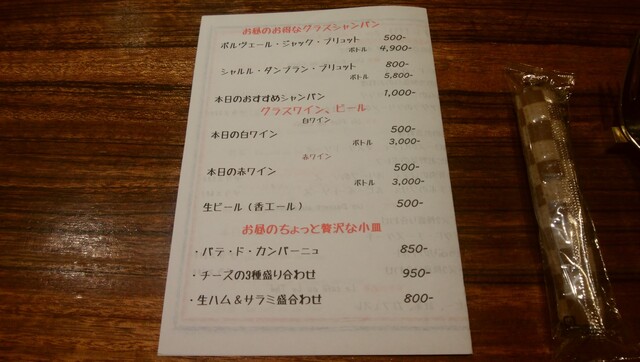 お昼のお得なグラスシャンパン
ポルヴェール・ジャック・ブリュット 500-
ボトル 4,900-
シャルル・ダンブラン・ブリュット 800-
ボトル 5,800-
本日のおすすめシャンパン 1,000-
グラスワイン、ビール
白ワイン
本日の白ワイン 500-
ボトル 3,000-
赤ワイン
本日の赤ワイン 500-
ボトル 3,000-
生ビール(香エール) 500-
お昼のちょっと贅沢な小皿
・パテ・ド・カンパーニュ 850-
・チーズの3種盛り合わせ 950-
・生ハム&サラミ盛合わせ 800-